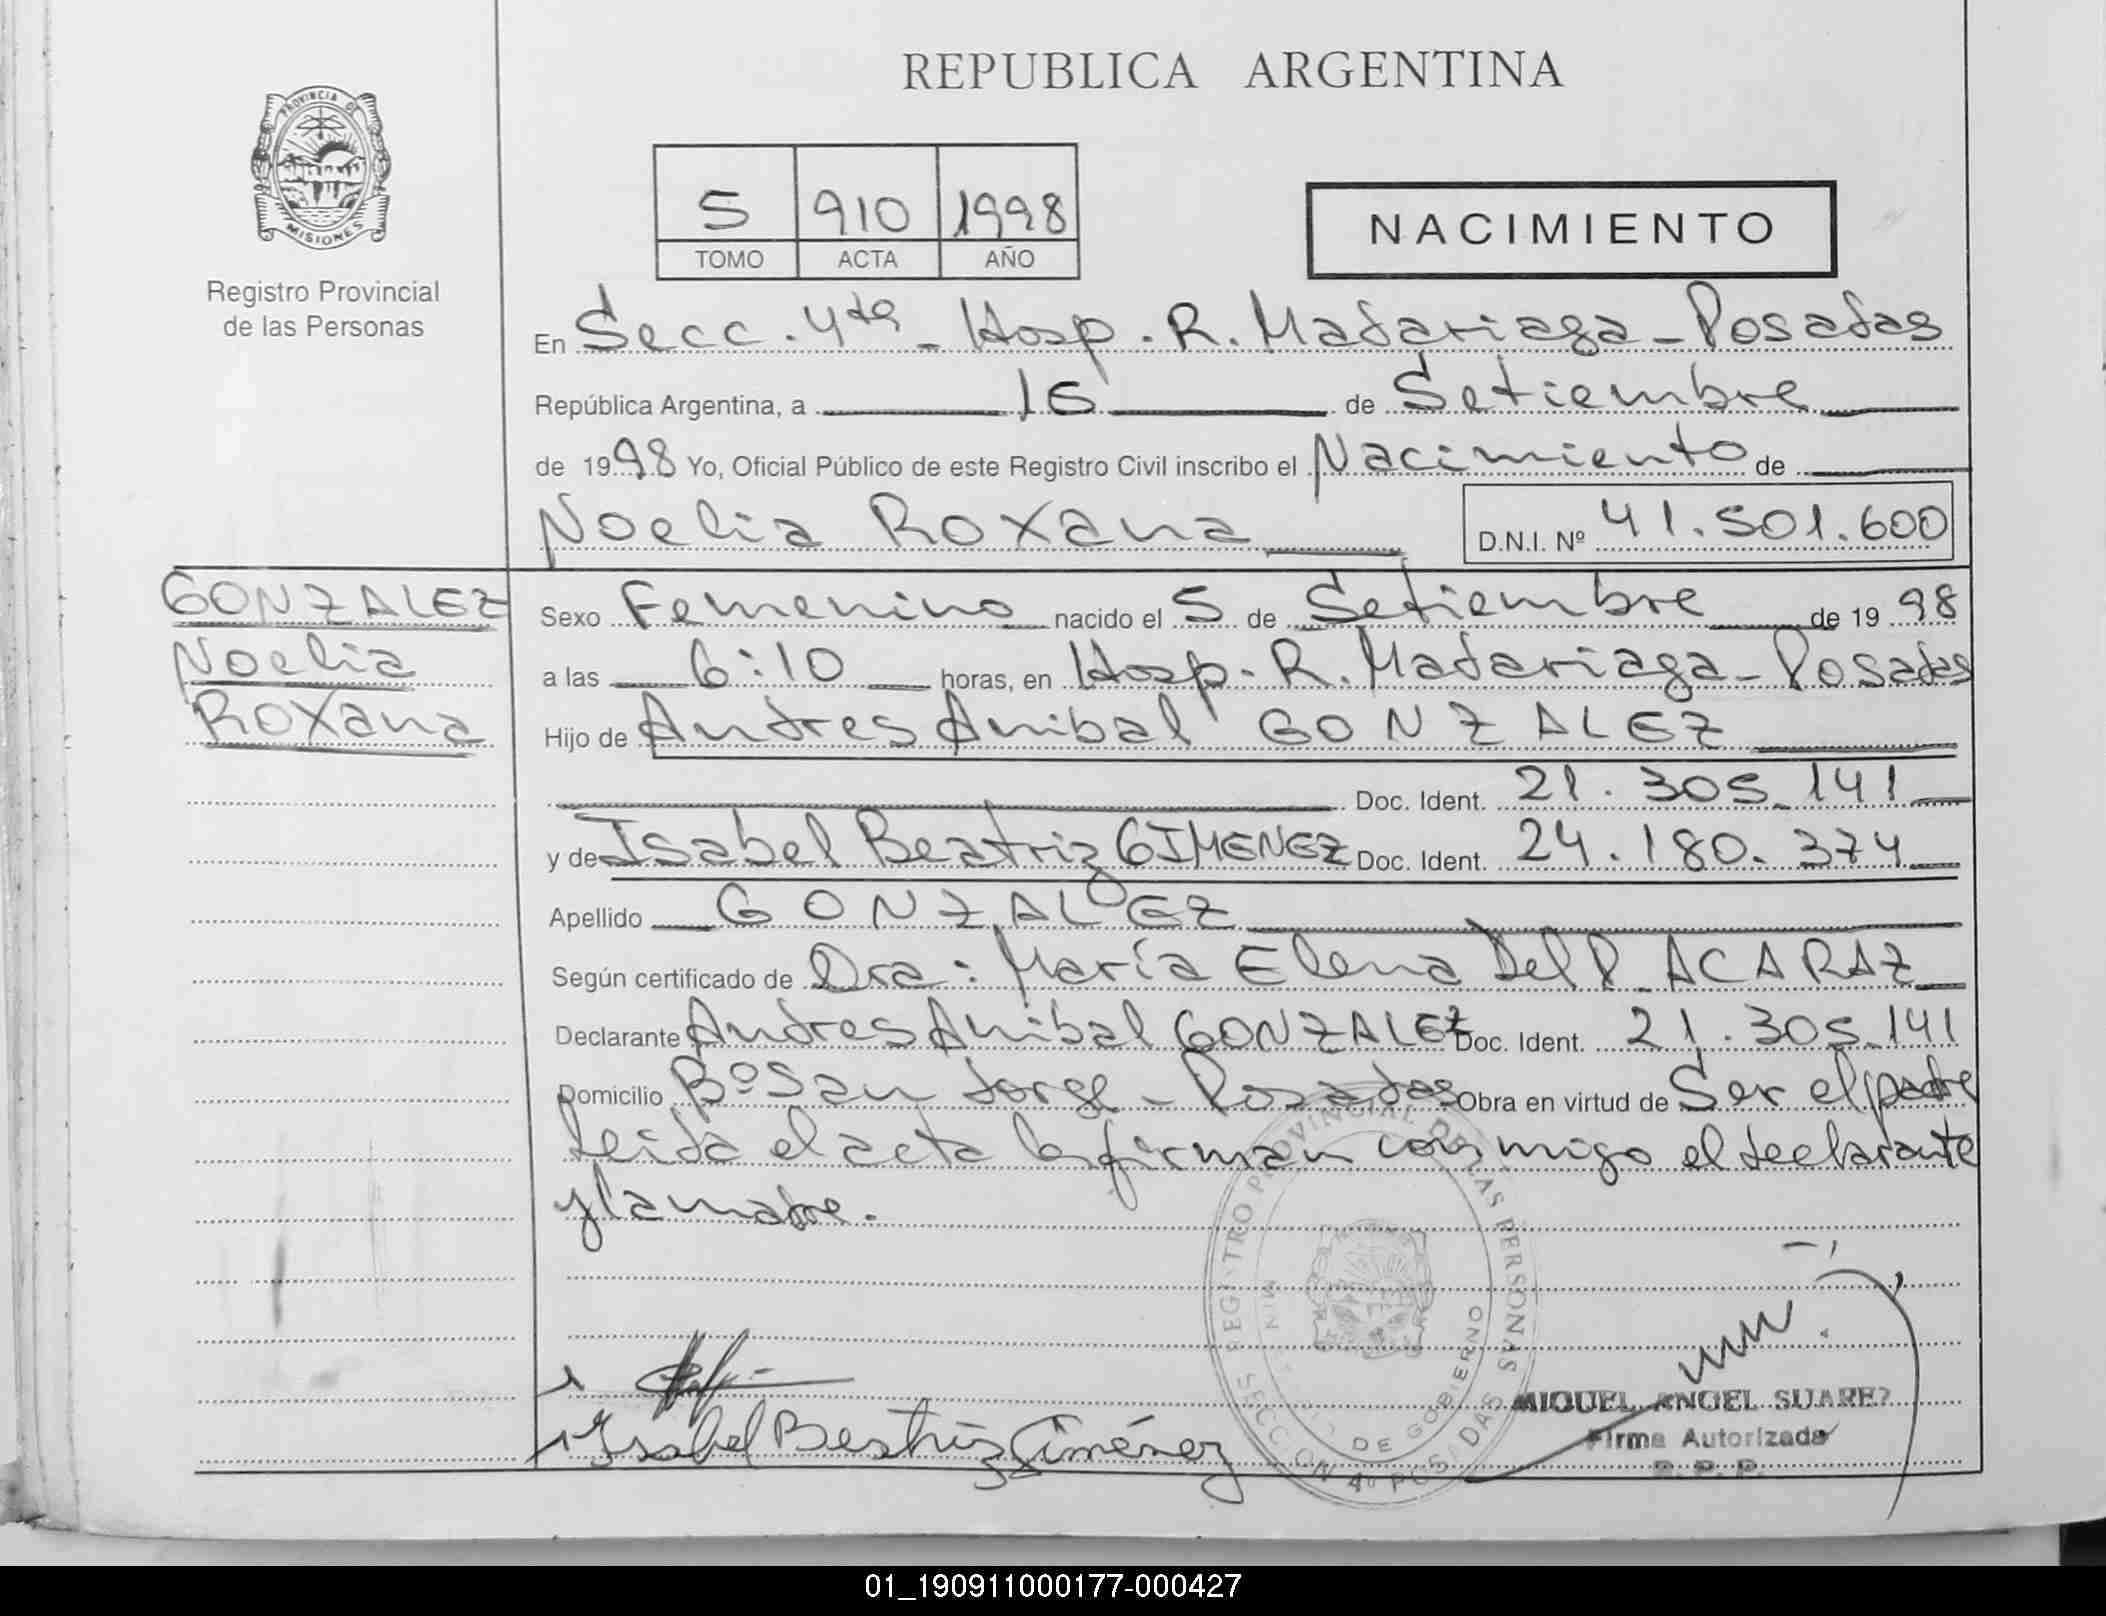 REPUBLICA ARGENTINA
PROVINCIA DE
MISIONES
Registro Provincial
de las Personas
5 910 1998
TOMO ACTA AÑO
NACIMIENTO
En Secc. 4ta - Hosp. R. Madariaga - Posadas
República Argentina, a 16 de Setiembre
de 1998 Yo, Oficial Público de este Registro Civil inscribo el Nacimiento de
Noelia Roxana D.N.I. Nº 41.501.600
GONZALEZ
Noelia
Roxana
Sexo Femenino nacido el 5 de Setiembre de 1998
a las 6:10 horas, en Hosp. R. Madariaga - Posadas
Hijo de Andres Anibal GONZALEZ
Doc. Ident. 21.305.141
y de Isabel Beatriz GIMENEZ Doc. Ident. 24.180.374
Apellido GONZALEZ
Según certificado de Dra: María Elena Del P. ACARAZ
Declarante Andres Anibal GONZALEZ Doc. Ident. 21.305.141
Domicilio Bº San Jorge - Posadas Obra en virtud de Ser el padre
Leida el acta la firman con migo el declarante
y la madre.
REGISTRO PROVINCIAL DE LAS PERSONAS
SECCION 4º POSADAS
DE GOBIERNO
Isabel Beatriz Giménez
MIGUEL ANGEL SUAREZ
Firma Autorizada
R. P. P.
01_190911000177-000427